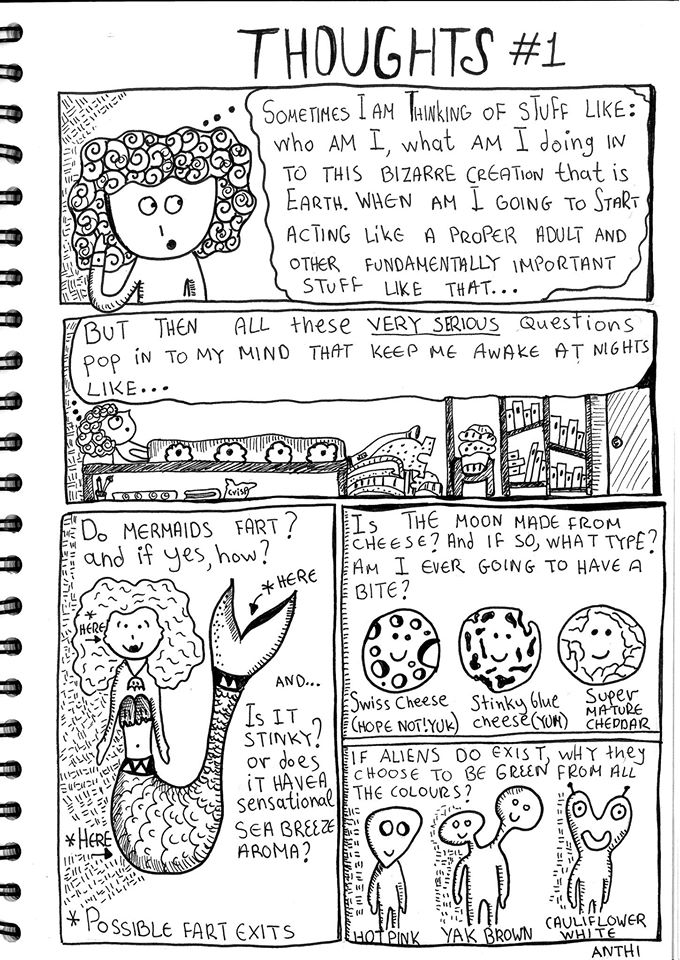 THOUGHTS #1
SOMETIMES I AM THINKING OF STUFF LIKE:
WHO AM I, WHAT AM I doing IN
TO THIS BIZARRE CREATION that is
EARTH. WHEN AM I GOING TO START
ACTING LIKE A PROPER ADULT AND
OTHER FUNDAMENTALLY IMPORTANT
STUFF LIKE THAT...
BUT THEN ALL these VERY SERIOUS Questions
POP IN TO MY MIND THAT KEEP ME AWAKE AT NIGHTS
LIKE...
DO MERMAIDS FART?
and if yes, how?
* HERE
* HERE
AND...
IS IT
STINKY?
or does
IT HAVE A
sensational
SEA BREEZE
AROMA?
* HERE
* POSSIBLE FART EXITS
IS THE MOON MADE FROM
CHEESE? And IF SO, WHAT TYPE?
AM I EVER GOING TO HAVE A
BITE?
Swiss Cheese
(HOPE NOT! YUK)
Stinky blue
cheese (YUM)
SUPER
MATURE
CHEDDAR
IF ALIENS DO EXIST, WHY they
CHOOSE TO BE GREEN FROM ALL
THE COLOURS?
HOT PINK
YAK BROWN
CAULIFLOWER
WHITE
ANTHI